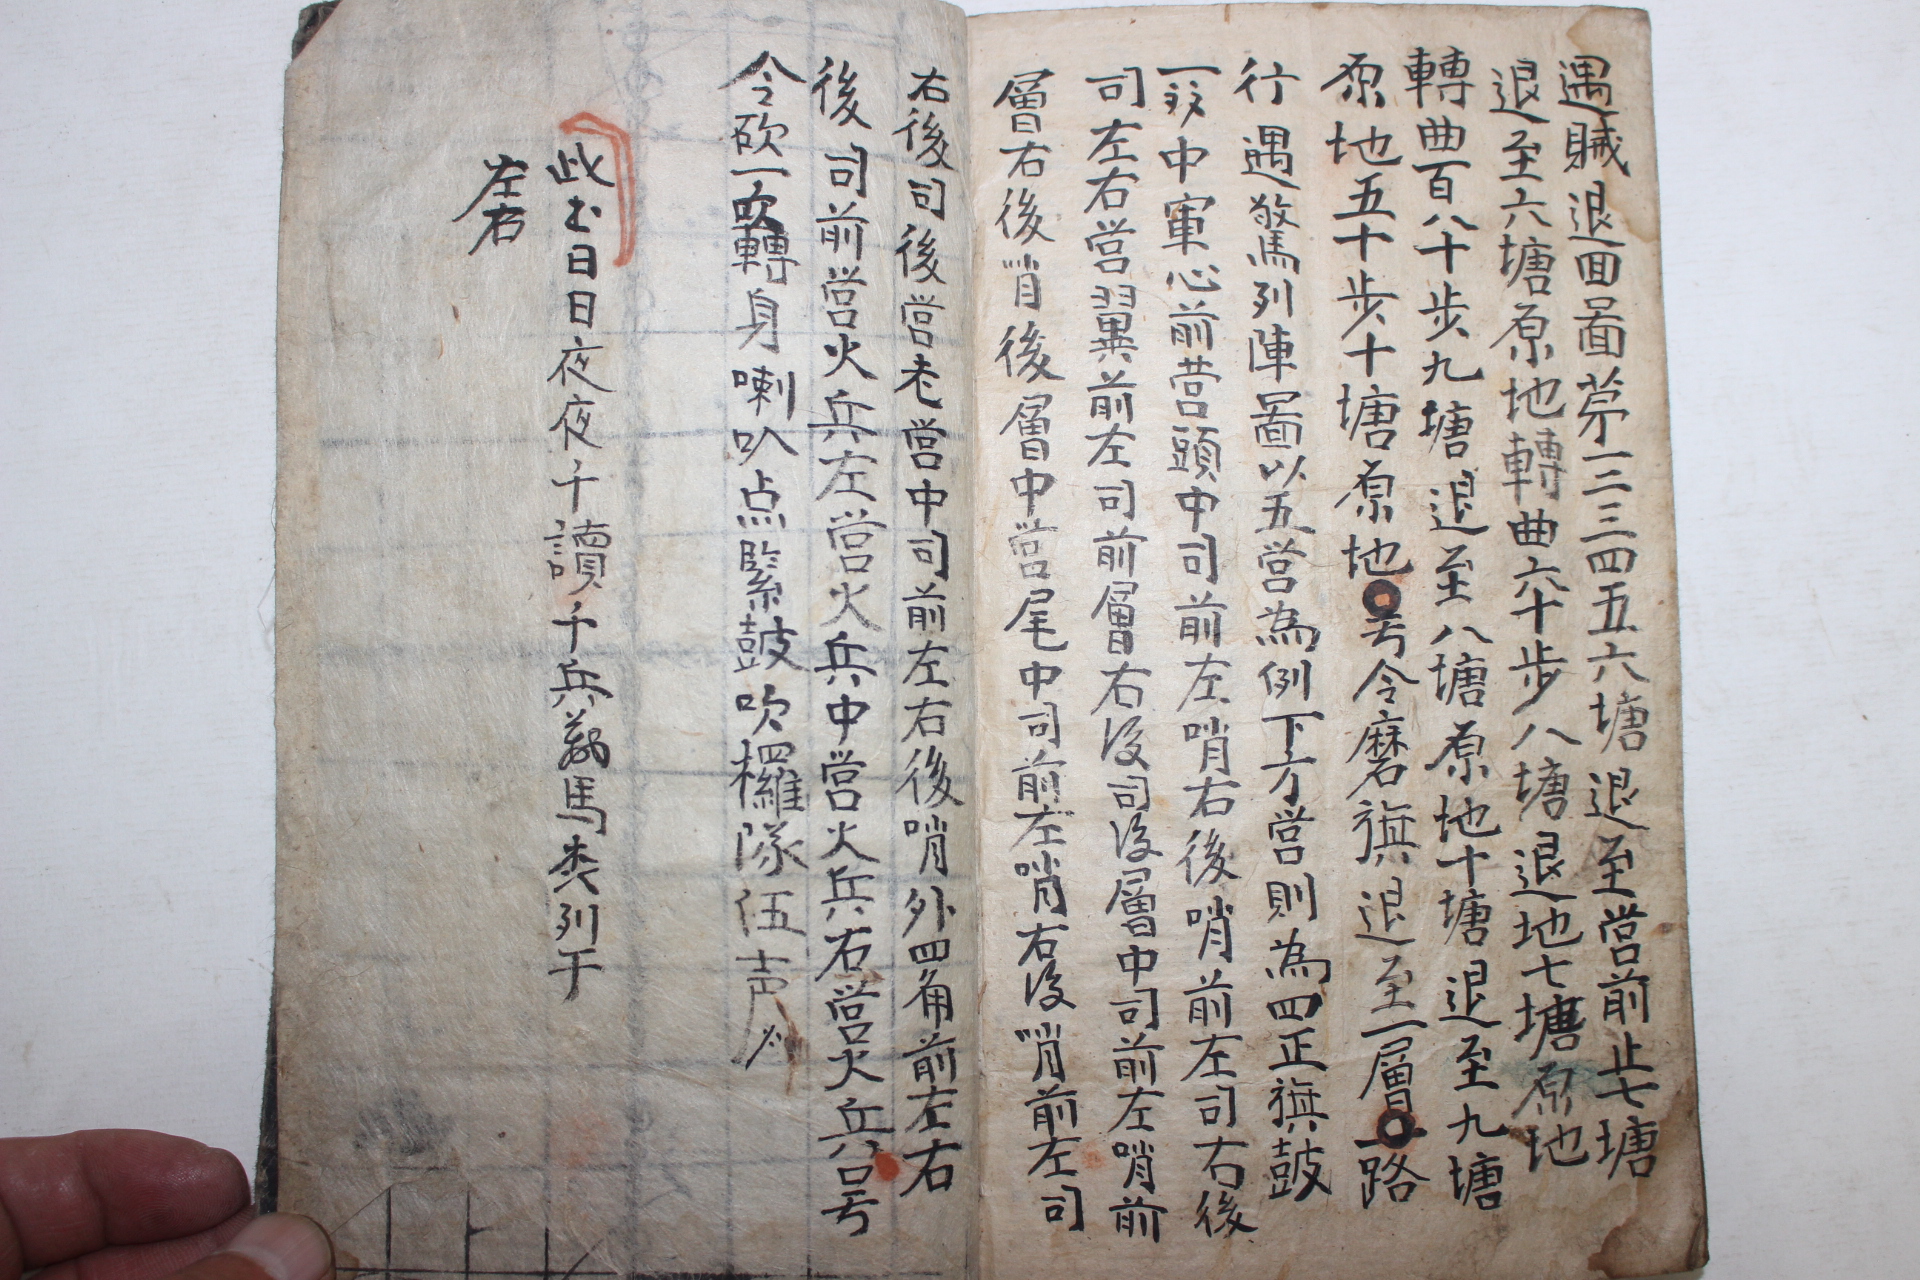 遇賊退回圖苐一二三四五六塘退至営前止七塘
退至六塘原地轉曲六十步八塘退地七塘原地
轉曲百八十步九塘退至八塘原地十塘退至九塘
原地五十步十塘原地○号令磨旗退至一層○一路
行遇驚列陣圖以五営為例下方営則為四正旗鼓
中軍心前営頭中司前左哨右後哨前左司右後
司左右営翼前左司前層右後司後層中司前左哨前
層右後哨後層中営尾中司前左哨右後哨前左司
右後司後営老営中司前左右後哨外四角前左右
後司前営火兵左営火兵中営火兵右営火兵号
令砍一吹轉身喇叭点緊鼓吹囉隊伍声
此书日日夜夜千讀千兵義馬类列于
左右